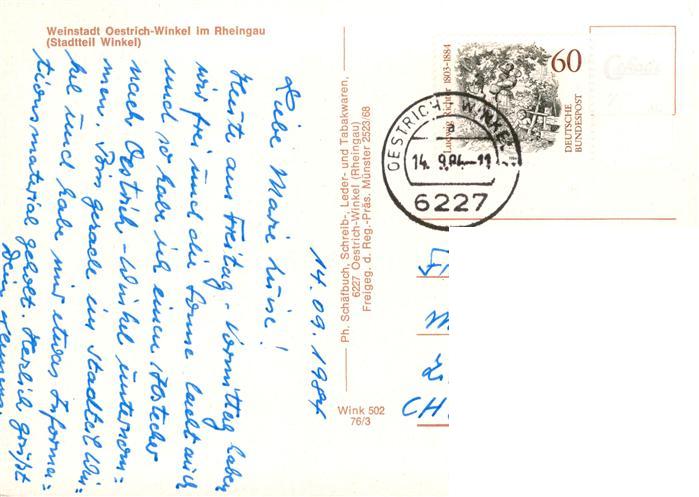 Weinstadt Oestrich-Winkel im Rheingau
(Stadtteil Winkel)
14.09.1984
Liebe Marie Luise!
Heute am Freitag-Vormittag haben
wir frei und die Sonne lacht auch
und so habe ich einen Abstecher
nach Oestrich-Winkel unternom=
men. Bin gerade im Stadtteil Win=
kel und habe mir etwas Informa=
tionsmaterial geholt. Herzlich grüßt
Dein
Ph. Schäfbuch, Schreib-, Leder- und Tabakwaren,
6227 Oestrich-Winkel (Rheingau)
Freigeg. d. Reg.-Präs. Münster 2523/68
Wink 502
76/3
Ludwig Richter 1803-1884
60
DEUTSCHE
BUNDESPOST
OESTRICH-WINKEL
a
14.9.84-11
6227
CH.